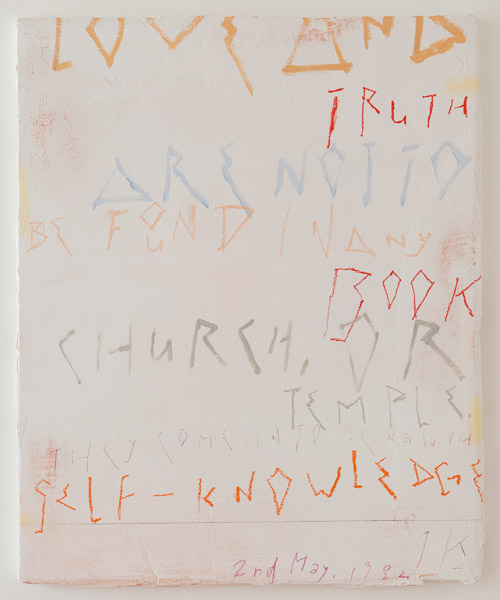 LOVE AND
TRUTH
ARE NOT TO
BE FOUND IN ANY
BOOK
CHURCH, OR
TEMPLE.
THEY COME INTO BEING WITH
SELF-KNOWLEDGE
2nd May, JK